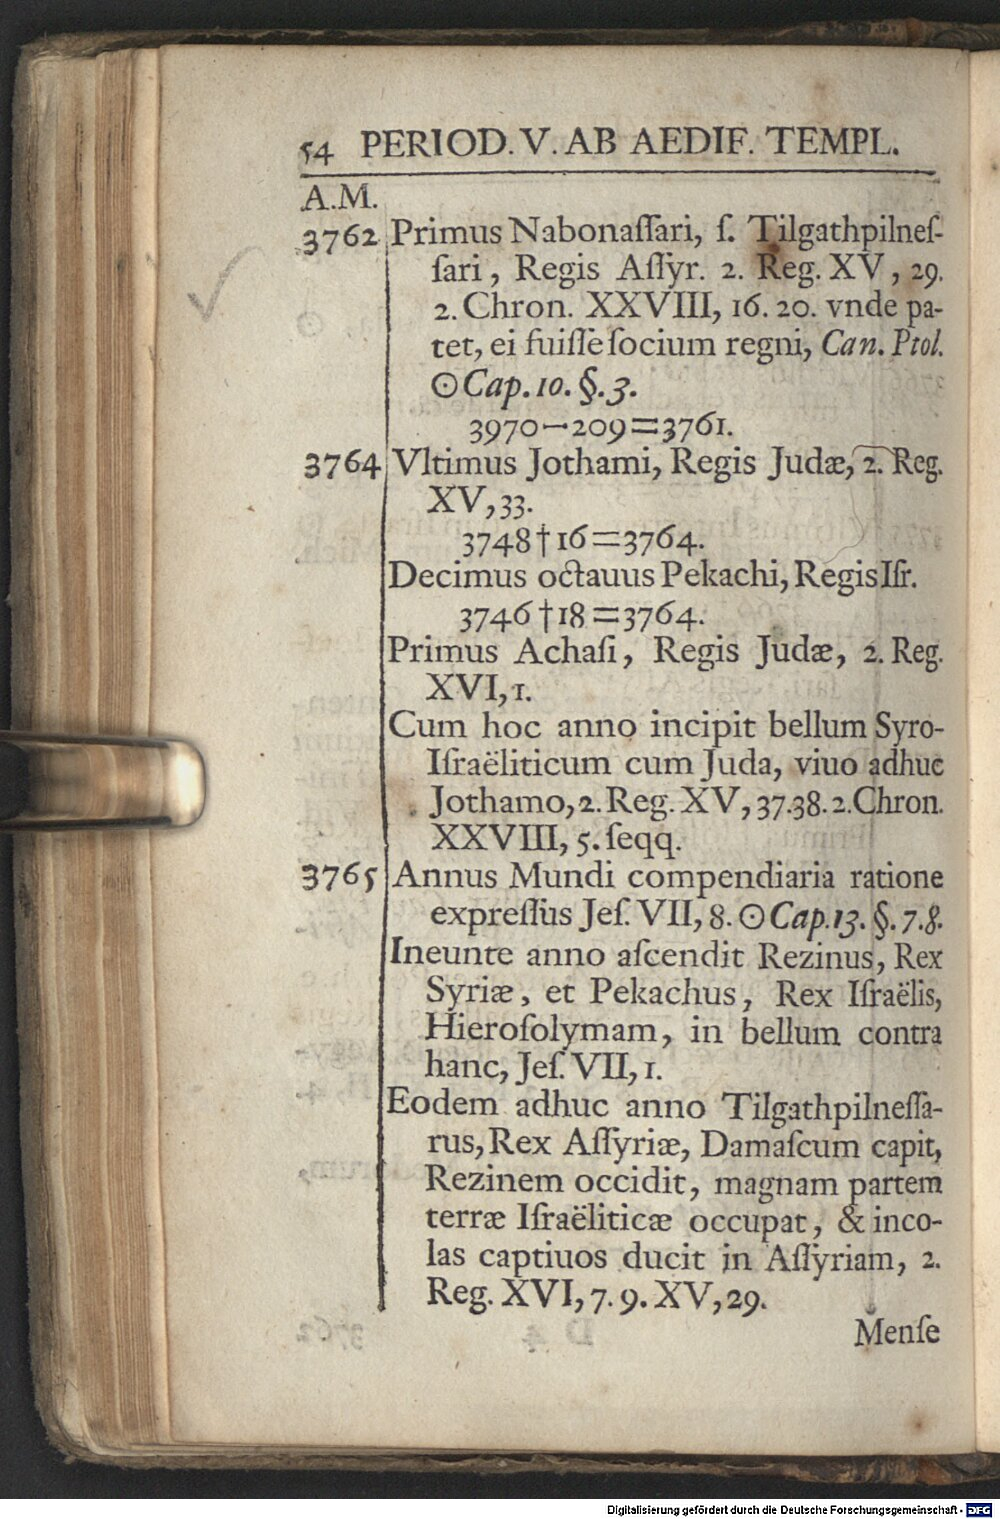 54 PERIOD. V. AB AEDIF. TEMPL.
A.M.
3762 Primus Nabonaſſari, ſ. Tilgathpilneſ-
ſari, Regis Aſſyr. 2. Reg. XV, 29.
2. Chron. XXVIII, 16. 20. vnde pa-
tet, ei fuiſſe ſocium regni, Can. Ptol.
☉ Cap. 10. §. 3.
3970—209=3761.
3764 Vltimus Jothami, Regis Judæ, 2. Reg.
XV, 33.
3748†16=3764.
Decimus octauus Pekachi, Regis Iſr.
3746†18=3764.
Primus Achaſi, Regis Judæ, 2. Reg.
XVI, 1.
Cum hoc anno incipit bellum Syro-
Iſraëliticum cum Juda, viuo adhuc
Jothamo, 2. Reg. XV, 37.38. 2. Chron.
XXVIII, 5. ſeqq.
3765 Annus Mundi compendiaria ratione
expreſſus Jeſ. VII, 8. ☉ Cap. 13. §. 7.8.
Ineunte anno aſcendit Rezinus, Rex
Syriæ, et Pekachus, Rex Iſraëlis,
Hieroſolymam, in bellum contra
hanc, Jeſ. VII, 1.
Eodem adhuc anno Tilgathpilneſſa-
rus, Rex Aſſyriæ, Damaſcum capit,
Rezinem occidit, magnam partem
terræ Iſraëliticæ occupat, & inco-
las captiuos ducit in Aſſyriam, 2.
Reg. XVI, 7. 9. XV, 29.
Menſe
Digitalisierung gefördert durch die Deutsche Forschungsgemeinschaft - DFG